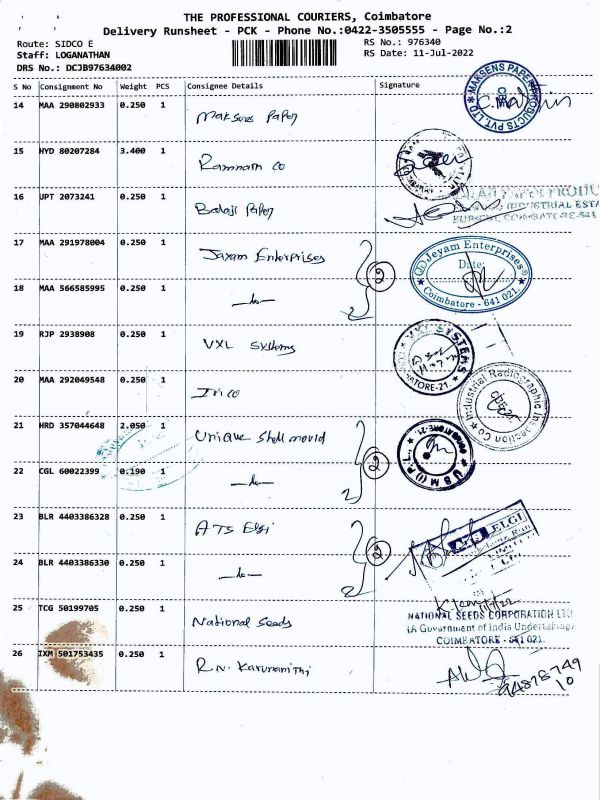 THE PROFESSIONAL COURIERS, Coimbatore
Delivery Runsheet - PCK - Phone No.:0422-3505555 - Page No.:2
Route: SIDCO E
RS No.: 976340
Staff: LOGANATHAN
RS Date: 11-Jul-2022
DRS No.: DCJB97634002
S No Consignment No Weight PCS Consignee Details Signature
14 MAA 290802933 0.250 1 Maksens Paper
MAKSENS PAPER PRODUCTS PVT. LTD
15 HYD 80207284 3.400 1 Ramnam co
16 UPT 2073241 0.250 1 Balaji Paper
17 MAA 291978004 0.250 1 Jayam Enterprises
2
Jeyam Enterprises
Date:
Coimbatore - 641 021.
18 MAA 566585995 0.250 1 —"—
19 RJP 2938908 0.250 1 VXL Systems
VXL SYSTEMS
COIMBATORE-21.
20 MAA 292049548 0.250 1 Irico
Industrial Radiographic Inspection Co
21 HRD 357044648 2.050 1 Unique Shell mould
2
U S M (I) P. L.
COIMBATORE-21.
22 CGL 60022399 0.190 1 —"—
23 BLR 4403386328 0.250 1 ATS Elgi
2
ATS ELGI
24 BLR 4403386330 0.250 1 —"—
25 TCG 50199705 0.250 1 National Seeds
NATIONAL SEEDS CORPORATION LTD
(A Government of India Undertaking)
COIMBATORE - 641 021.
26 IXM 501753435 0.250 1 R.N. Karunanithi